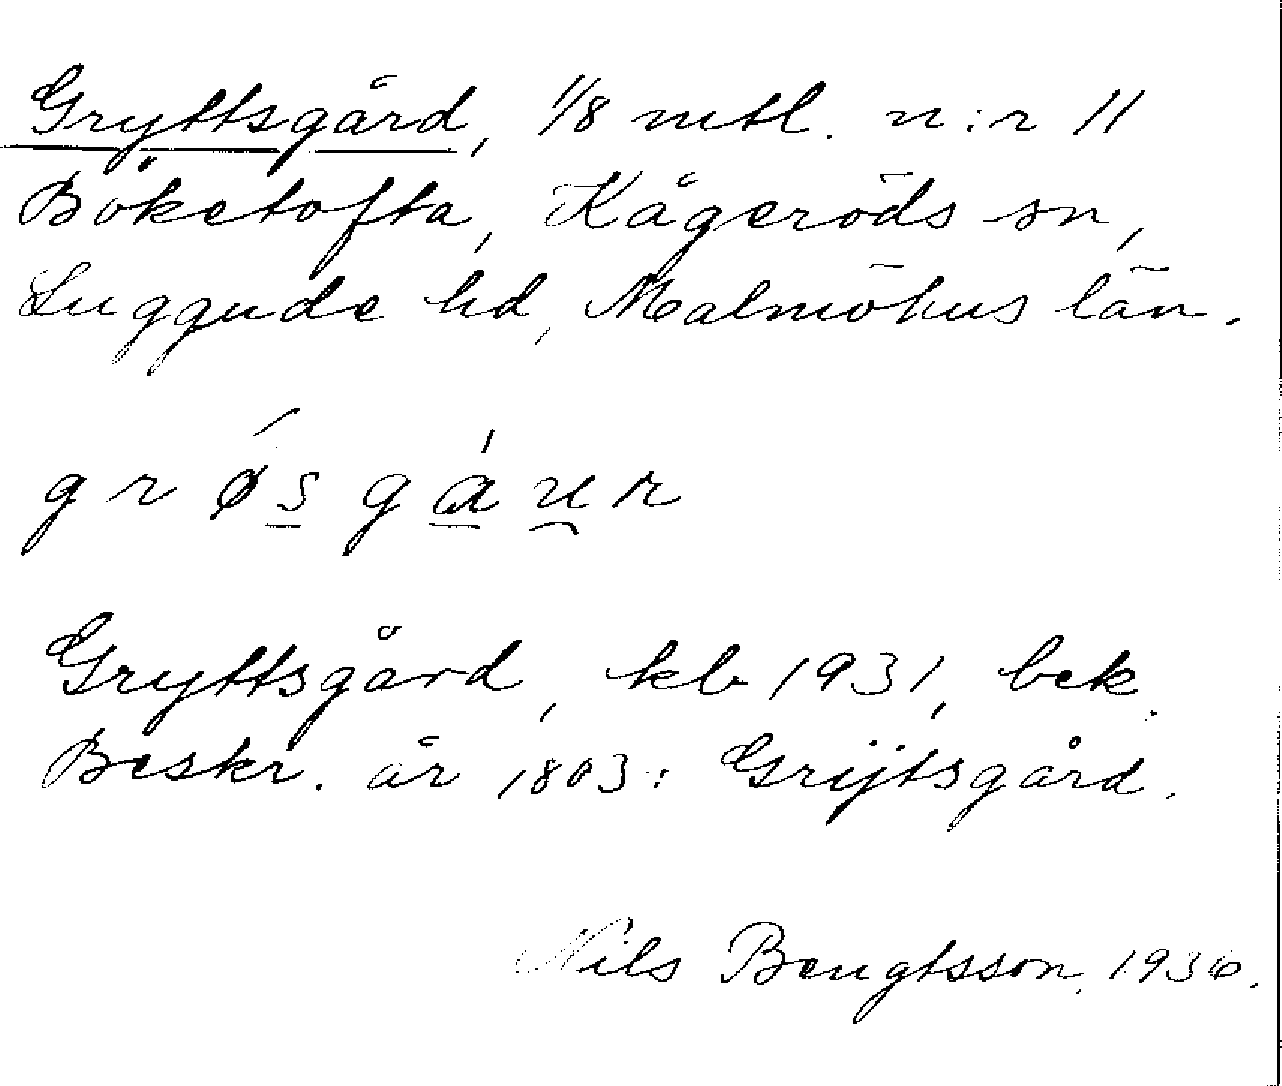 Gryttsgård, 1/8 mtl. n:r 11
Böketofta, Kågeröds sn,
Luggude hd, Malmöhus län.
grǿsgáu̯r
Gryttsgård, kb 1931, bek.
Beskr. år 1803: Grijtsgård.
Nils Bengtsson, 1936.